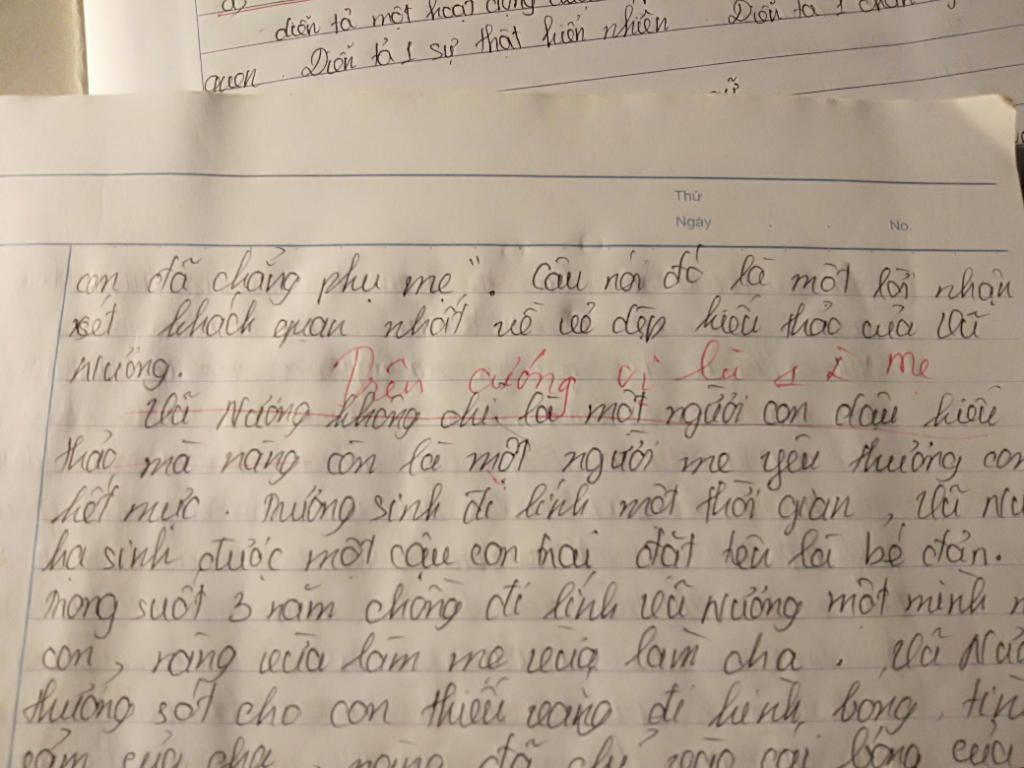 diễn tả một hoạt động
quan. Diễn tả 1 sự thật hiển nhiên. Diễn tả 1
Thứ
Ngày
No.
con đã chẳng phụ mẹ". Câu nói đó là một lời nhận
xét khách quan nhất về vẻ đẹp hiếu thảo của Vũ
Nương.
Trên cương vị là 1 mẹ
Vũ Nương không chỉ là một người con dâu hiếu
thảo mà nàng còn là một người mẹ yêu thương con
hết mực. Trương sinh đi lính một thời gian, Vũ
hạ sinh được một cậu con trai đặt tên là bé đản.
Trong suốt 3 năm chồng đi lính Vũ Nương một mình
con, vừa làm mẹ vừa làm cha. Vũ
thương sót cho con thiếu vắng đi hình bóng,
của cha, nàng đã chỉ cái bóng của